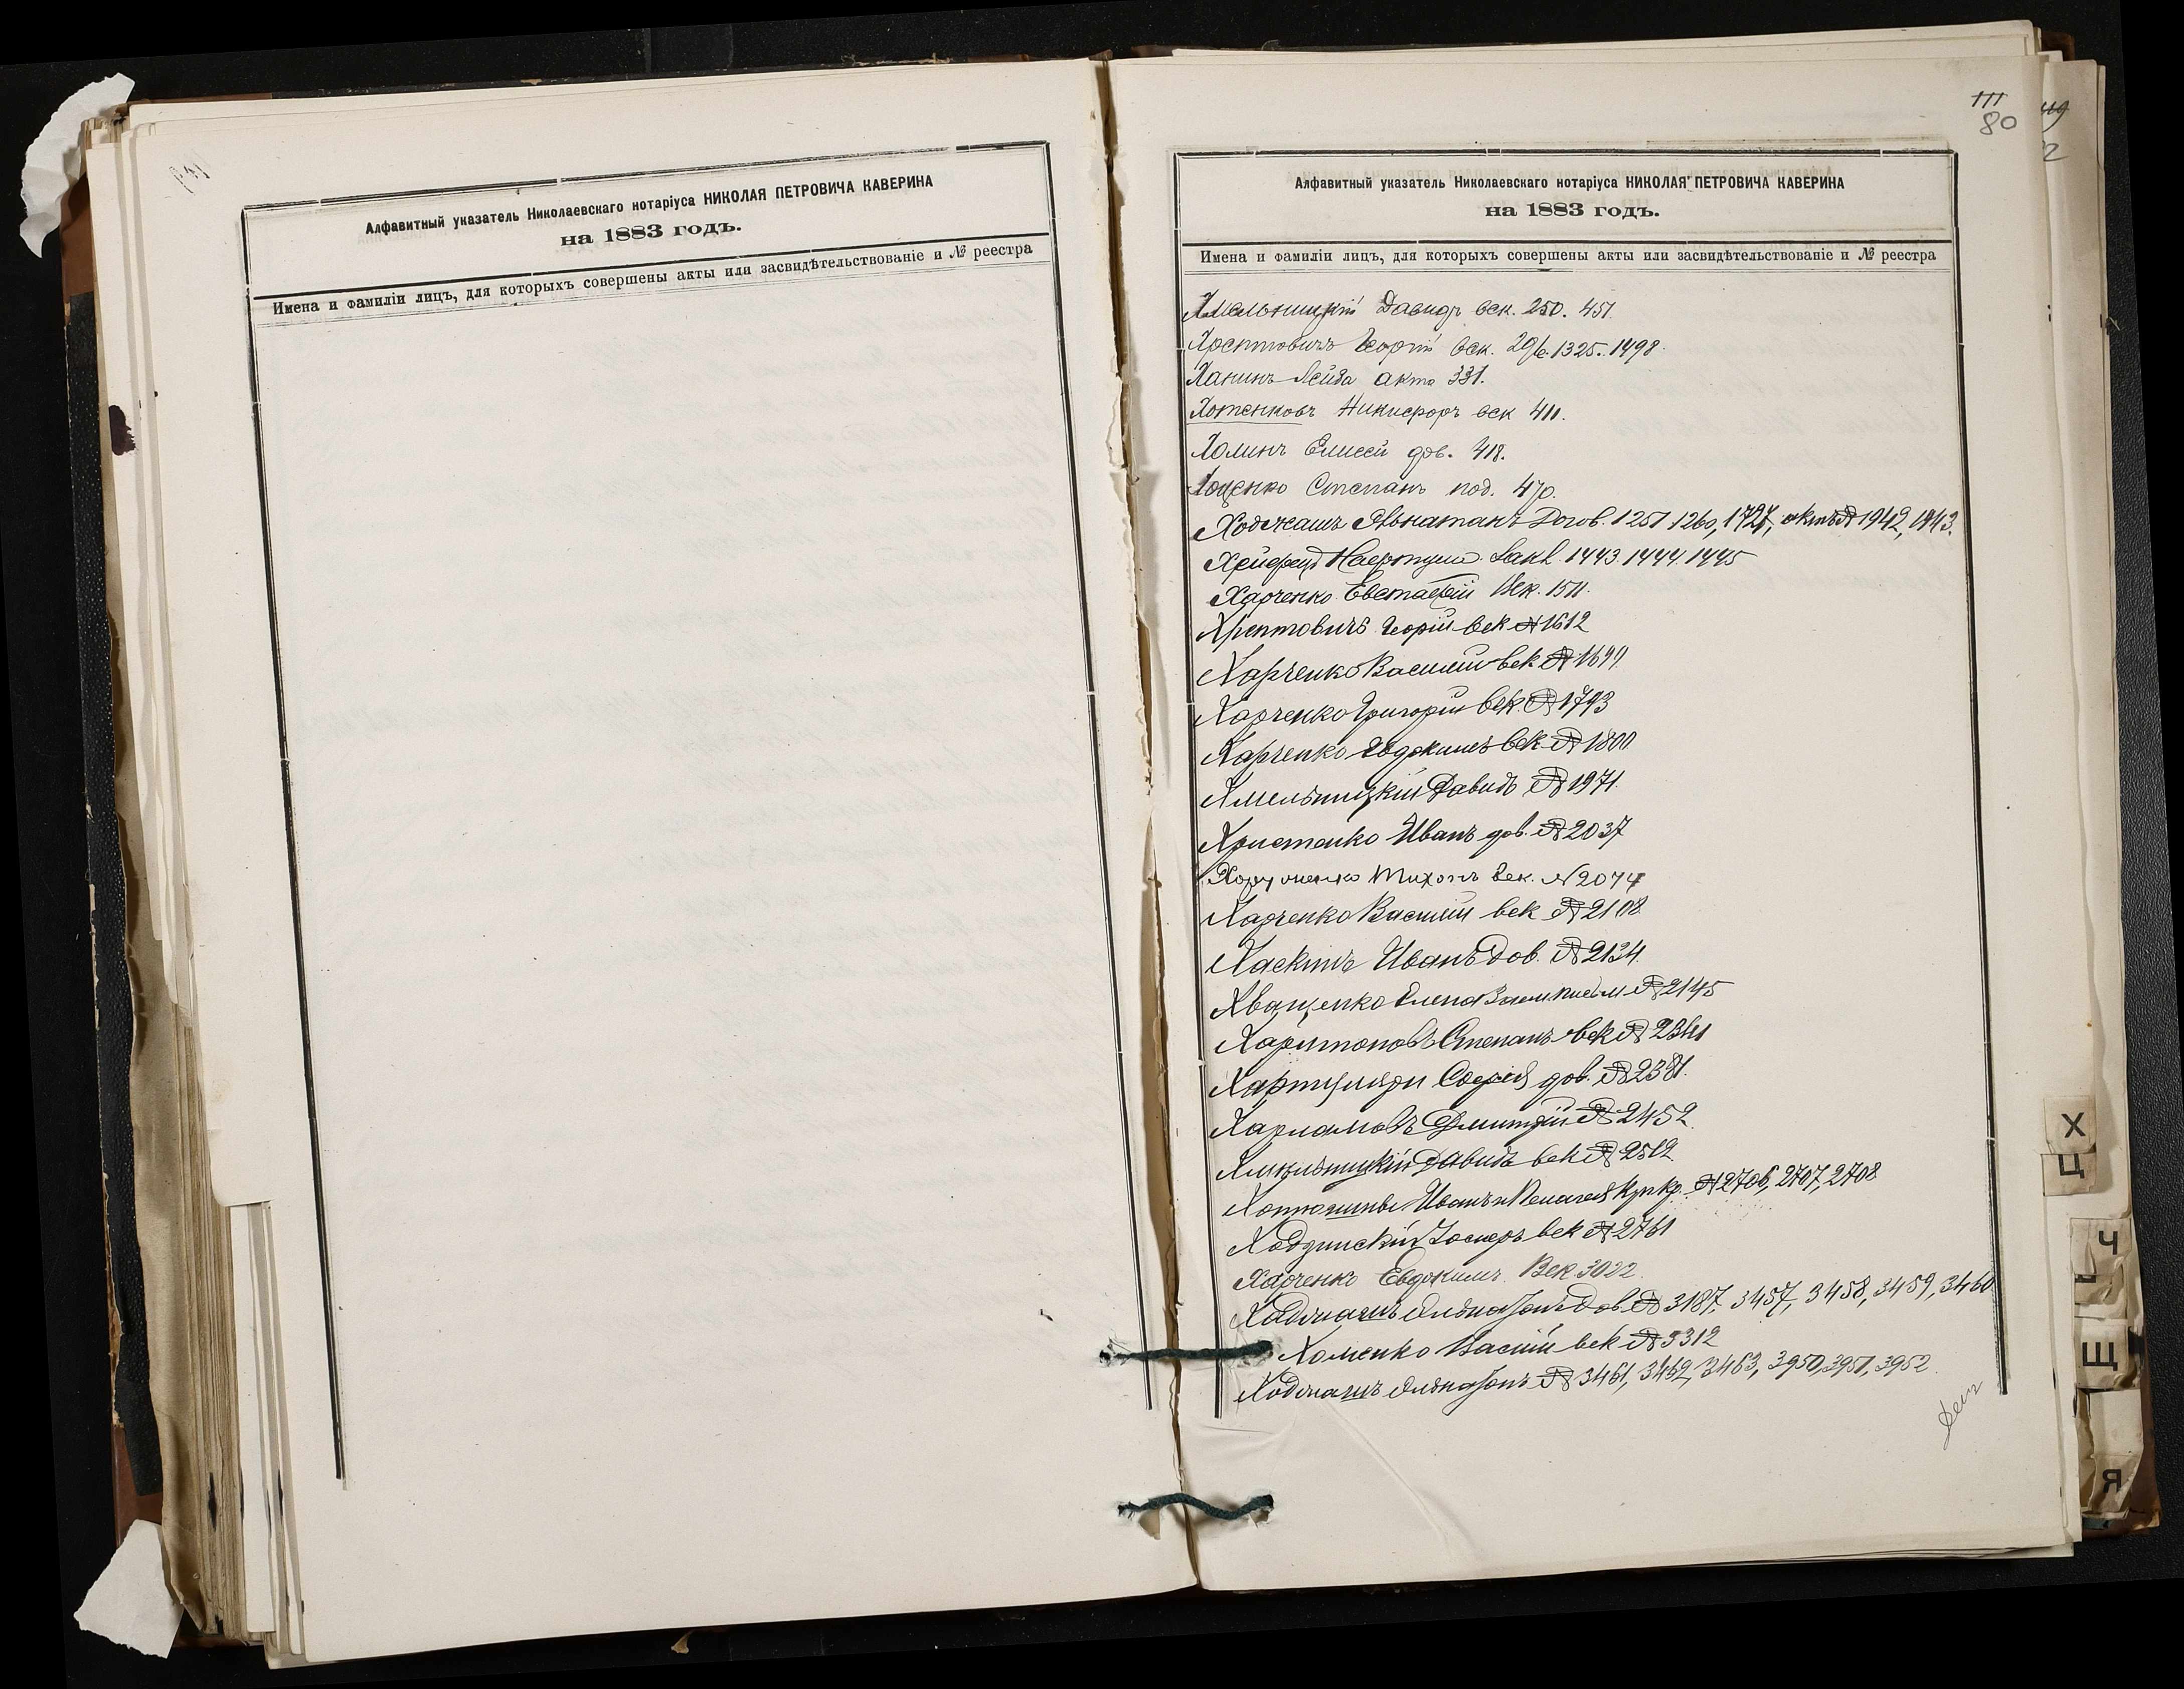 Алфавитный указатель Николаевскаго нотаріуса НИКОЛАЯ ПЕТРОВИЧА КАВЕРИНА
на 1883 годъ.
Имена и фамиліи лицъ, для которыхъ совершены акты или засвидѣтельствованіе и № реестра
111
80
Алфавитный указатель Николаевскаго нотаріуса НИКОЛАЯ ПЕТРОВИЧА КАВЕРИНА
на 1883 годъ.
Имена и фамиліи лицъ, для которыхъ совершены акты или засвидѣтельствованіе и № реестра
Хмельницкій Давидъ век. 250. 451.
Хрептовичъ Георгій век. 1325. 1498.
Ханинъ Лейба актъ 331.
Хотенковъ Никифоръ век 411.
Холинъ Елисей дов. 418.
Хоценко Степанъ под. 470.
Ходжашъ Эльнатанъ Догов. 1251 1260, 1727, актъ № 1942, 1943.
1443. 1444. 1445
Харченко Евстафій Век. 1511.
Хрептовичъ Георгій век № 1612
Харченко Василій век № 1699
Харченко Григорій век. № 1793
Харченко Евдокимъ век № 1800
Хмельницкій Давидъ № 1971.
Христенко Иванъ дов. № 2037
Тихонъ век. № 2074
Харченко Василій век № 2108
Хаскинъ Иванъ Дов. № 2134.
Хващенко Елена № 2145
Харитоновъ Степанъ век № 2341
Софія дов. № 2381.
Харламовъ Дмитрій № 2452.
Хмельницкій Давидъ век № 2512
Иванъ и Пелагея № 2706, 2707, 2708
Іосифъ век № 2761
Харченко Евдокимъ. Век 3022.
Ходжашъ Эльнатанъ Дов. № 3187, 3457, 3458, 3459, 3460
Хоменко Васілій век № 3312
Ходжашъ Эльнатанъ № 3461, 3462, 3463, 3950, 3951, 3952
Х
Ц
Ч
Щ
Я